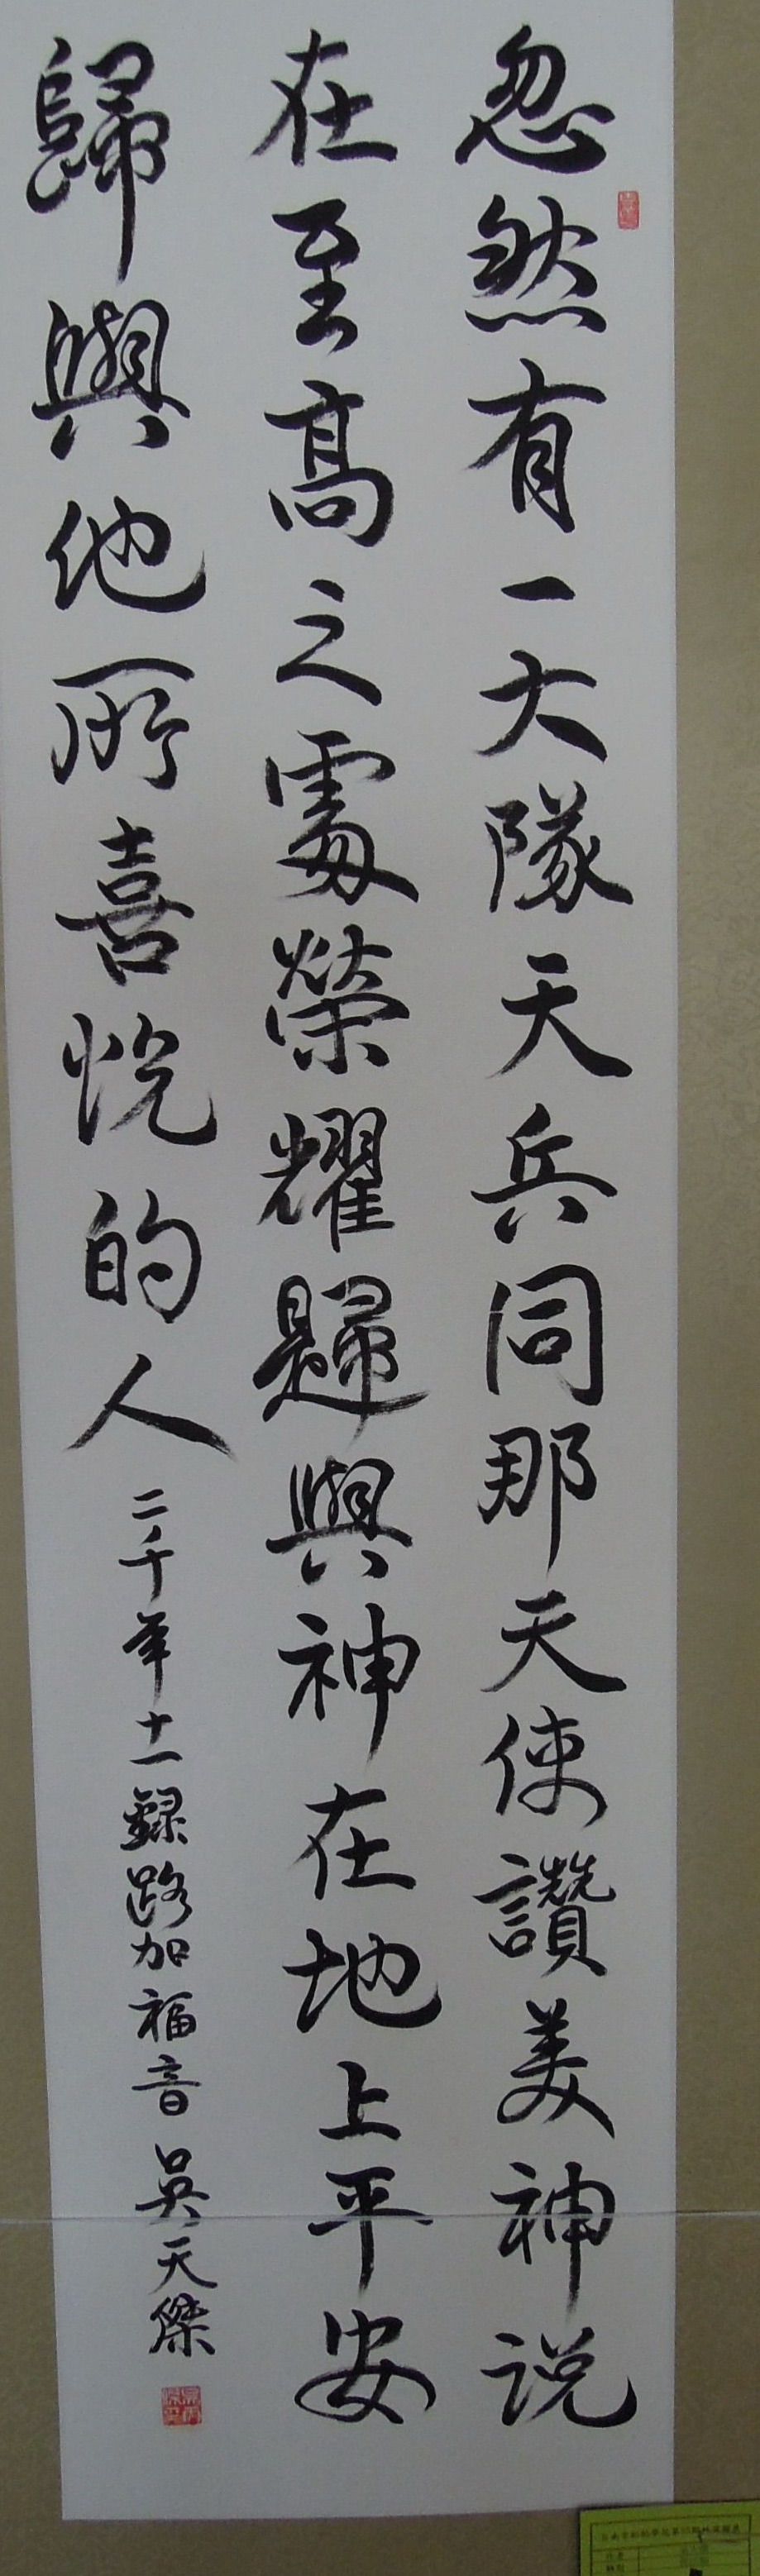 忽然有一大隊天兵同那天使讚美神説
在至高之處榮耀歸與神在地上平安
歸與他所喜悅的人
二千年十一錄路加福音 吳天傑